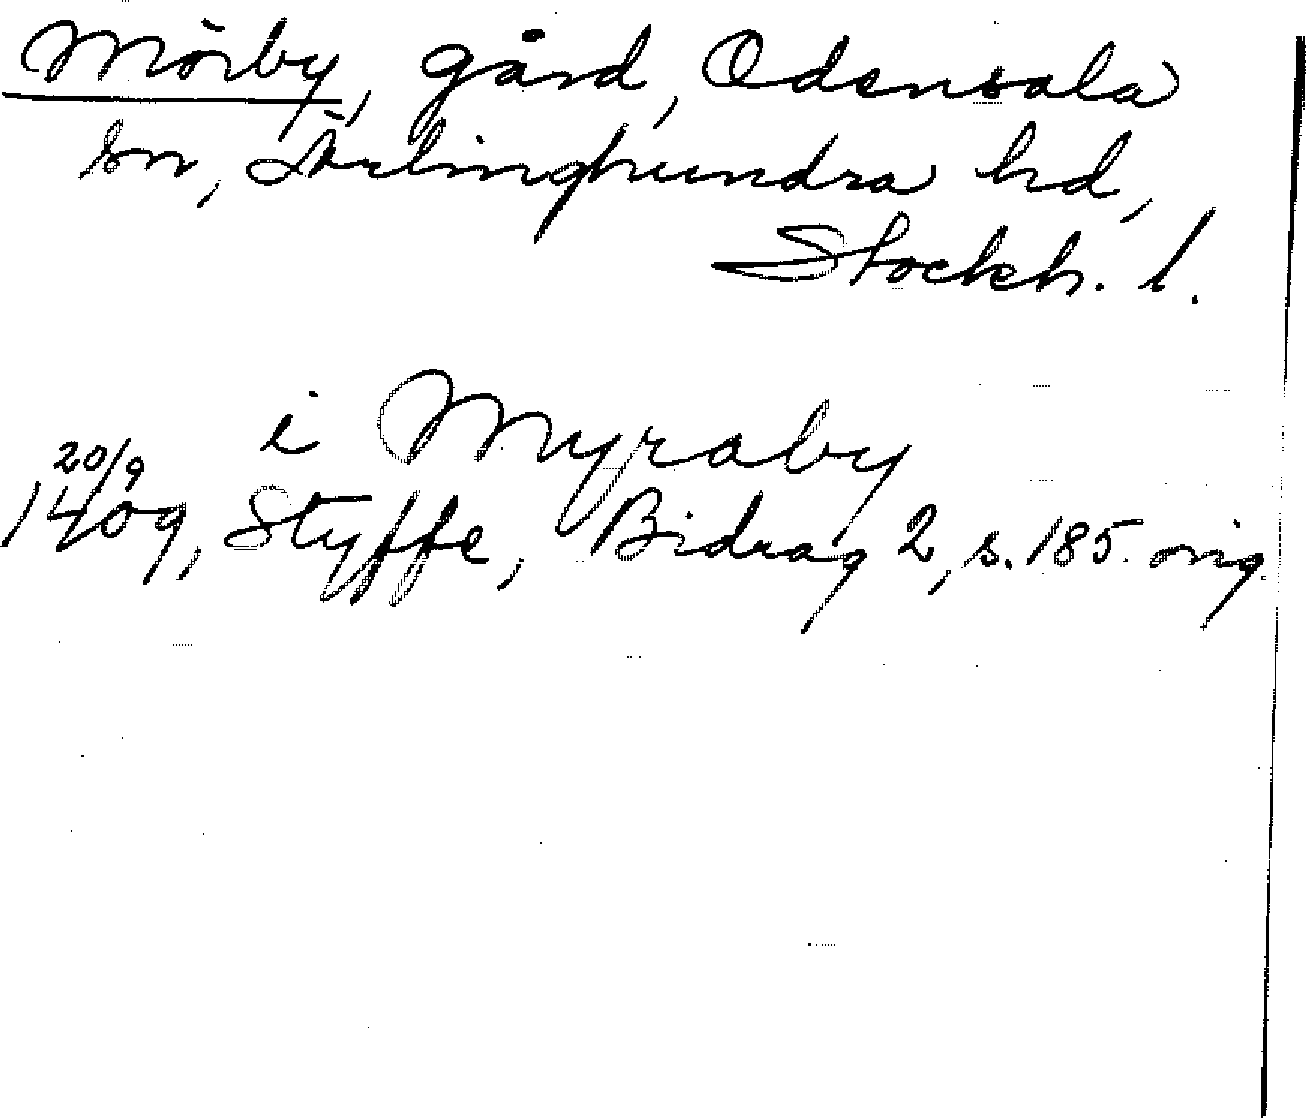 Mörby, gård, Odensala
sn, Ärlinghundra hd,
Stockh. l.
i Myraby
20/9
1409, Styffe, Bidrag 2, s. 185. orig.